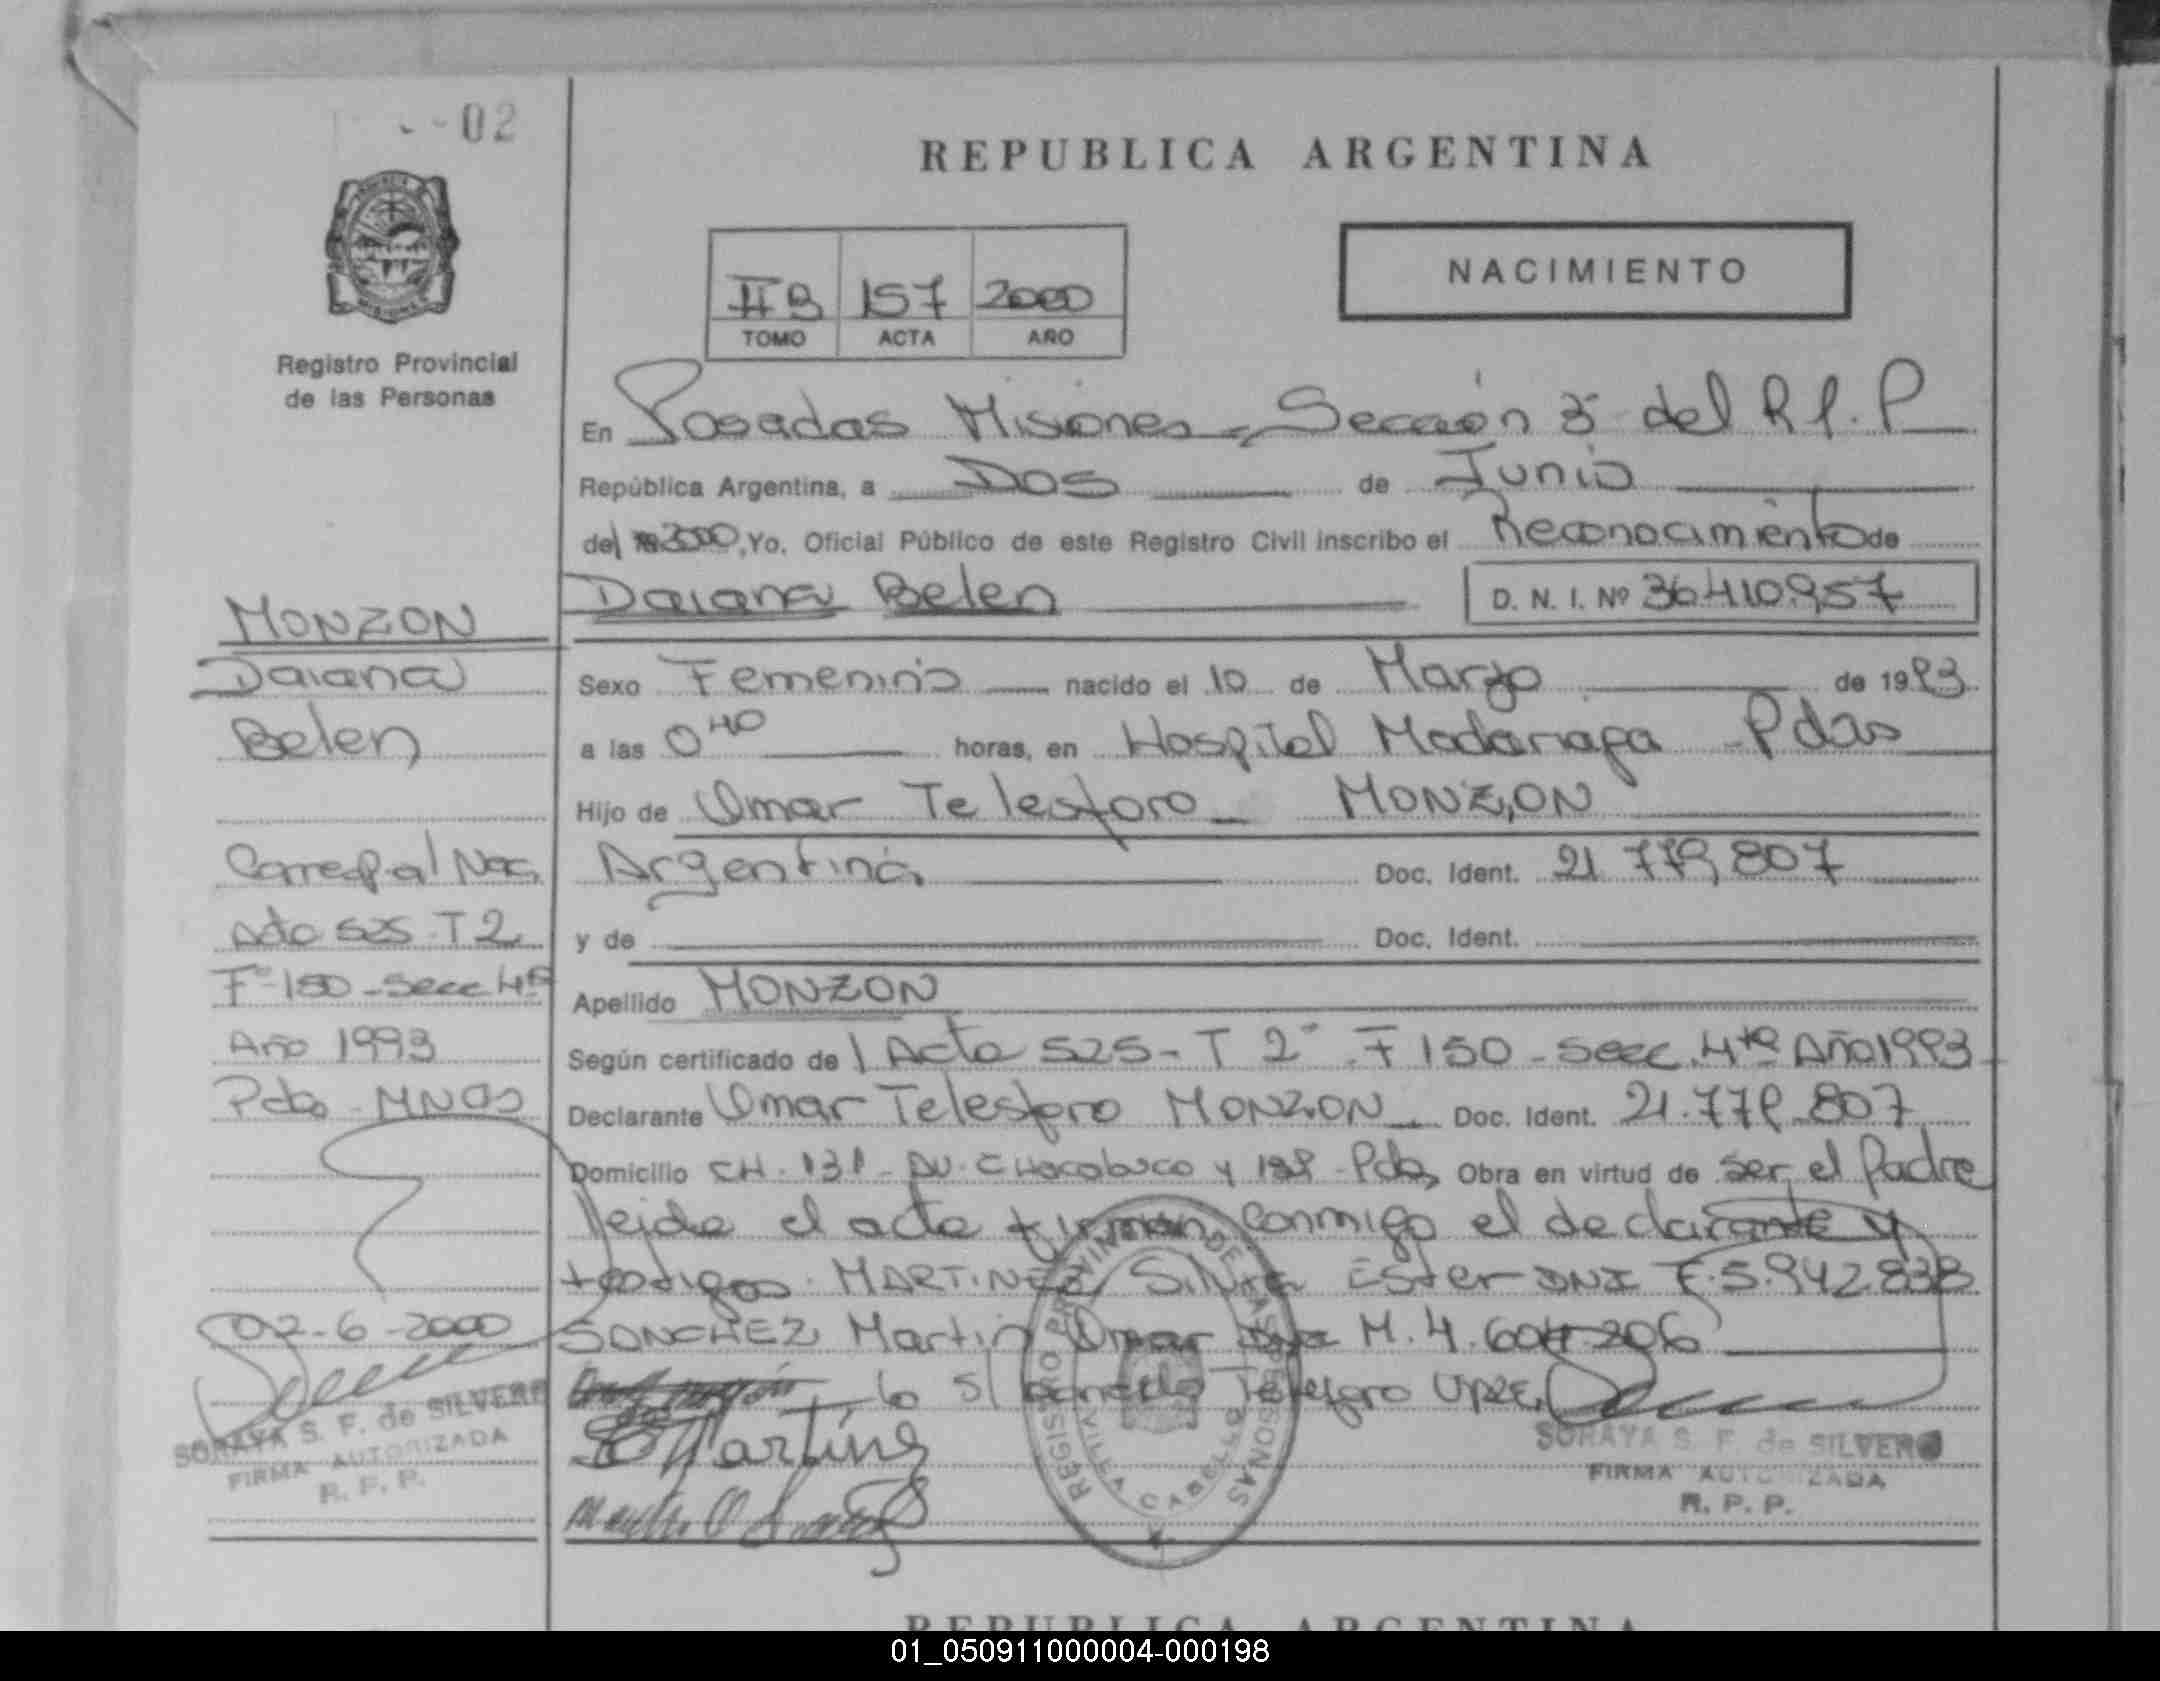 02
REPUBLICA ARGENTINA
NACIMIENTO
II B 157 2000
TOMO ACTA AÑO
Registro Provincial
de las Personas
En Posadas Misiones - Sección 3ª del R.P.P
República Argentina, a Dos de Junio
del 2000, Yo, Oficial Público de este Registro Civil inscribo el Reconocimiento de
Daiana Belen D. N. I. Nº 36.410.957
MONZON
Daiana
Belen
Corresp al Nac.
Acta 525 T 2
Fº 150 - Secc 4ta
Año 1993
Pdas - MNES
02-6-2000
SORAYA S. F. de SILVERO
FIRMA AUTORIZADA
R. P. P.
Sexo Femenino nacido el 10 de Marzo de 1993
a las 0 40 horas, en Hospital Madariaga Pdas
Hijo de Omar Telesforo MONZON
Argentina Doc. Ident. 21.779.807
y de Doc. Ident.
Apellido MONZON
Según certificado de Acta 525 - T 2º F 150 - Secc. 4ta Año 1993
Declarante Omar Telesforo MONZON Doc. Ident. 21.779.807
Domicilio CH. 131 - AV. CHacabuco y Pdas Obra en virtud de ser el Padre
leida el acta firman conmigo el declarante y
testigos MARTINEZ Silvia Ester DNI F.5.942.838
SANCHEZ Martin Omar M. 4.604.206
lo s/ Telesforo
SORAYA S. F. de SILVERO
FIRMA AUTORIZADA
R. P. P.
REGISTRO PROVINCIAL DE LAS PERSONAS
VILLA CABELLO
REPUBLICA ARGENTINA
01_050911000004-000198